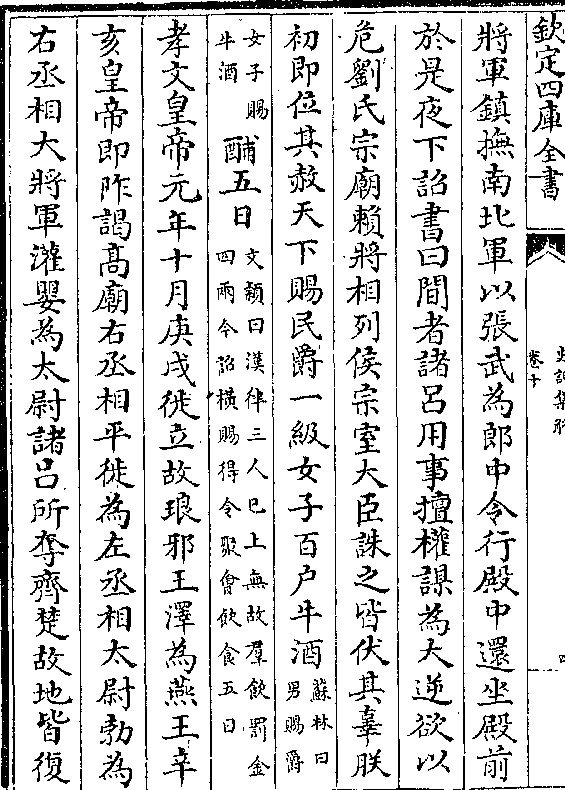 欽定四庫全書
史記集解
卷十
四
將軍鎮撫南北軍以張武為郎中令行殿中還坐殿前
於是夜下詔書曰間者諸呂用事擅權謀為大逆欲以
危劉氏宗廟賴將相列侯宗室大臣誅之皆伏其辜朕
初即位其赦天下賜民爵一級女子百户牛酒蘇林曰男賜爵
女子賜牛酒酺五日文穎曰漢律三人已上無故羣飲罰金四兩今詔橫賜得令聚會飲食五日
孝文皇帝元年十月庚戌徙立故琅邪王澤為燕王辛
亥皇帝即阼謁髙廟右丞相平徙為左丞相太尉勃為
右丞相大將軍灌嬰為太尉諸呂所奪齊楚故地皆復